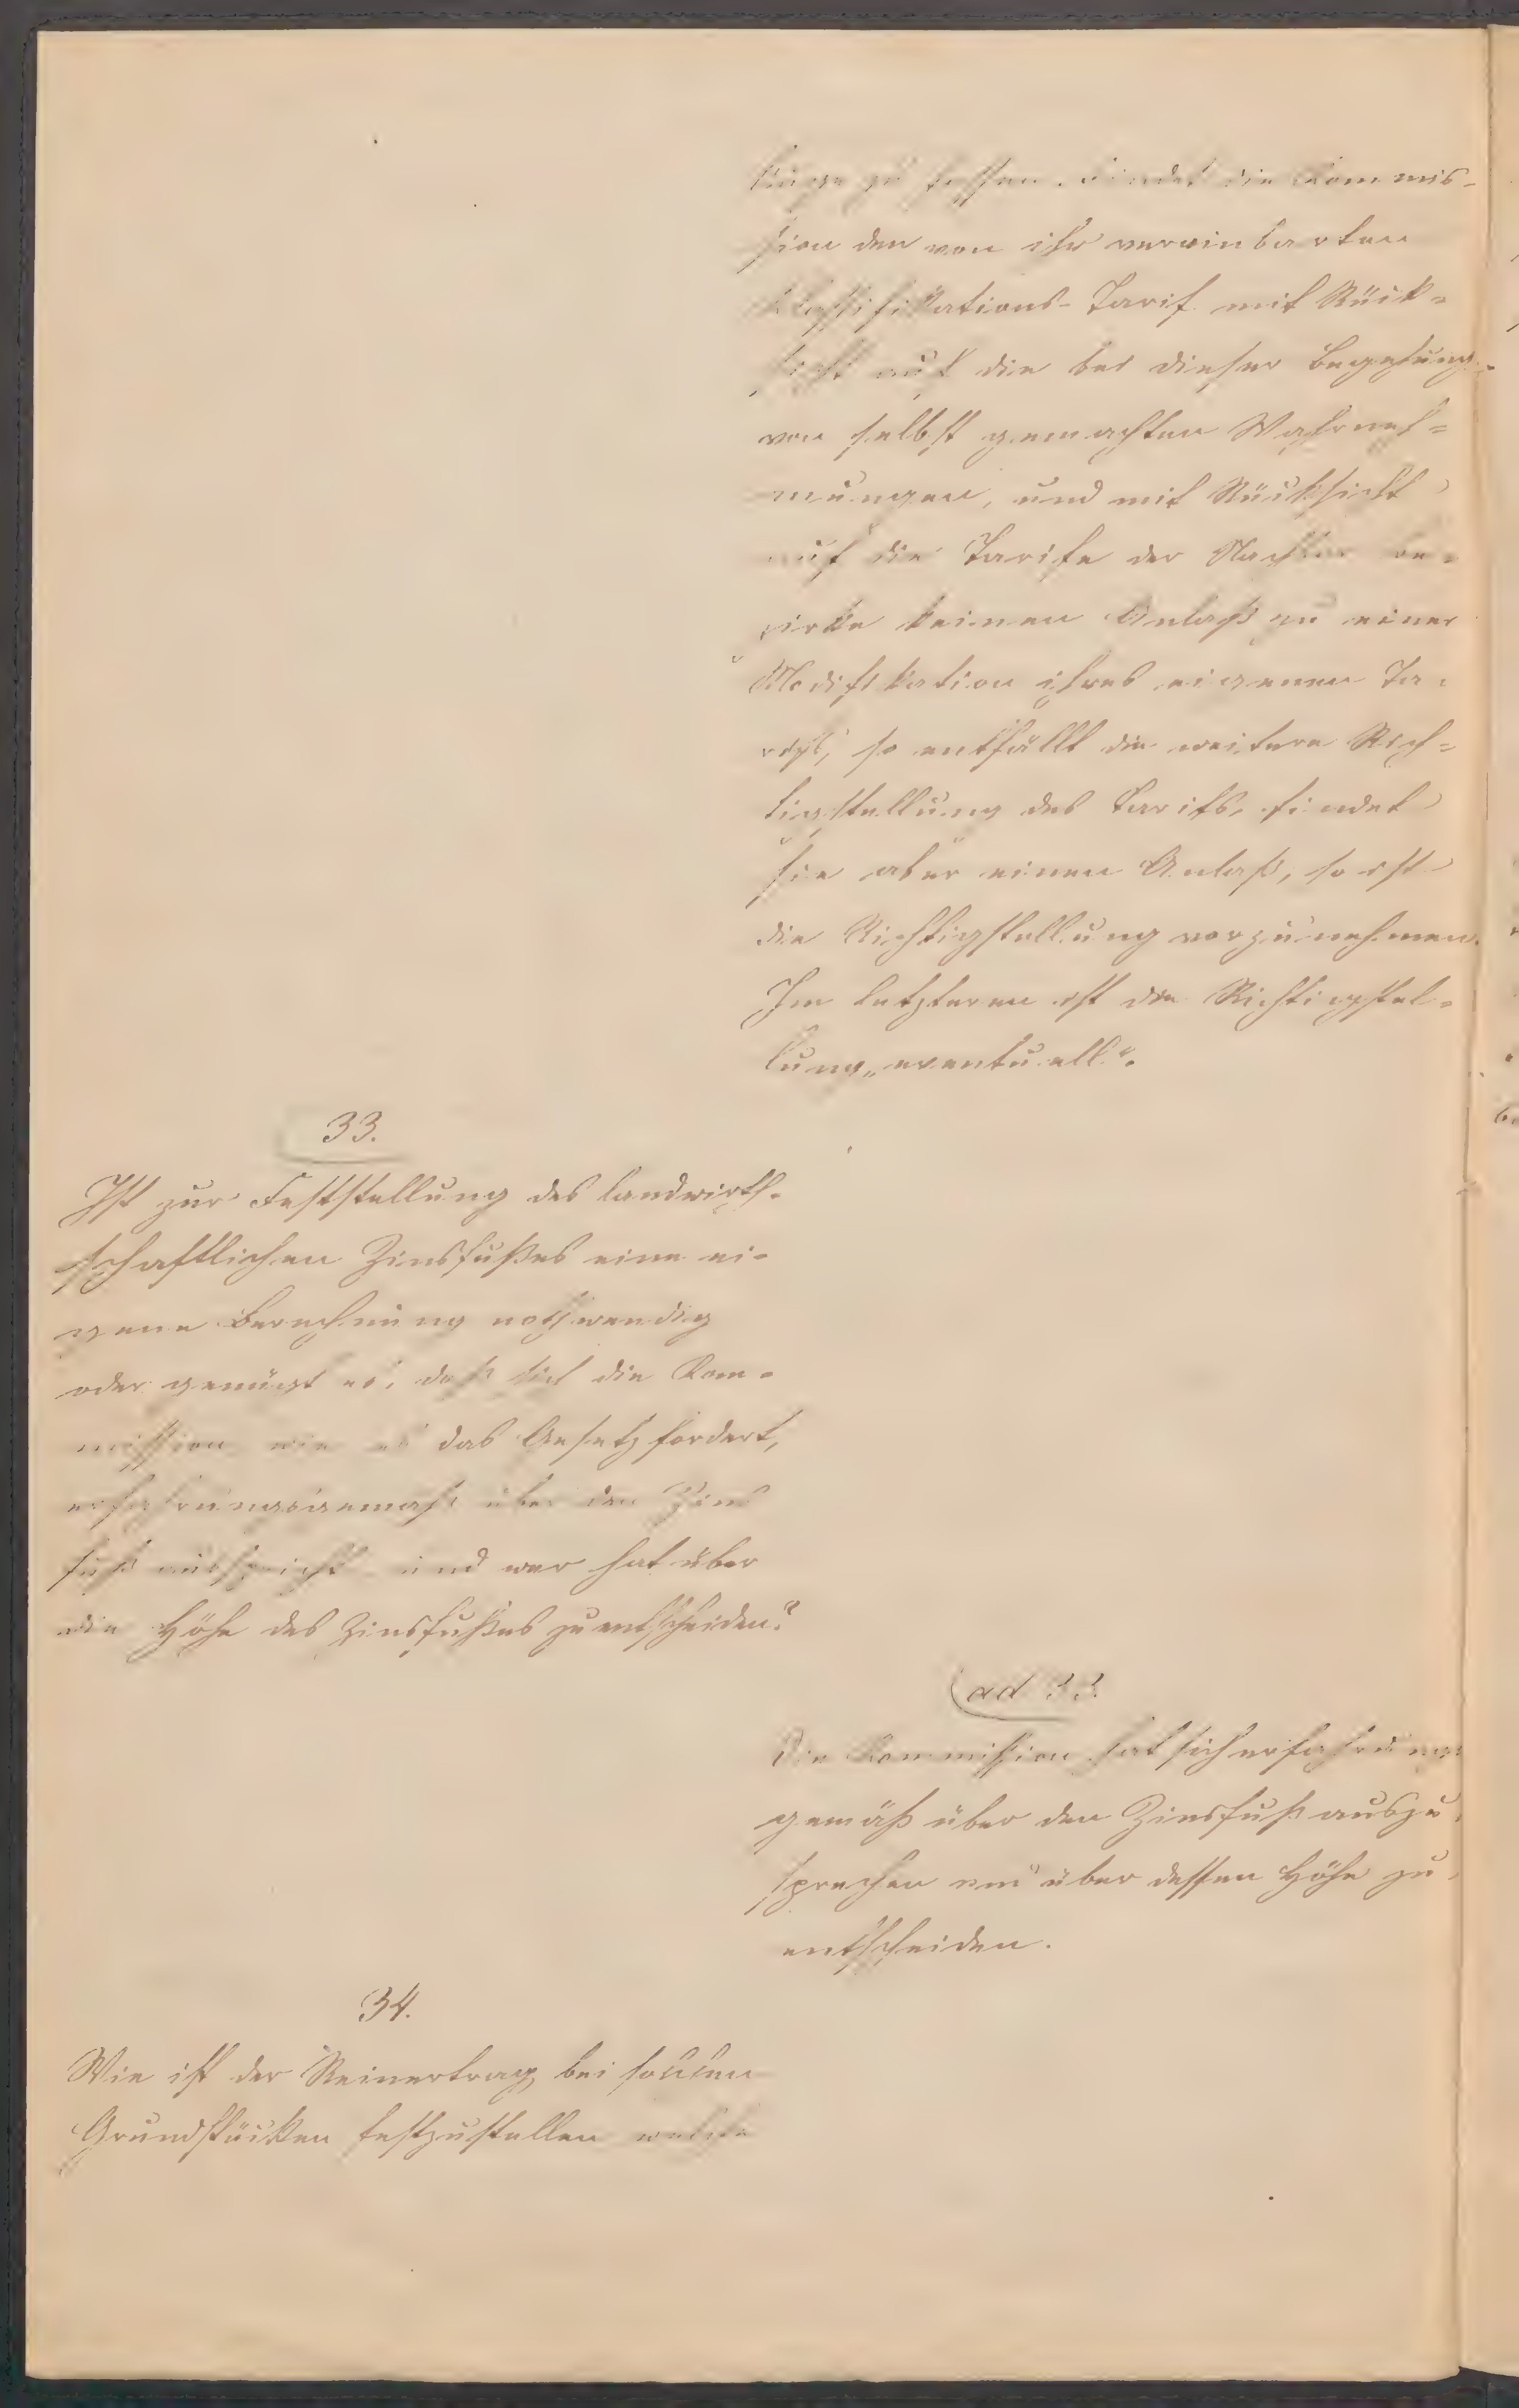 zu fassen. Findet die Kommis-
sion den von ihr vereinbarten
Klassifikations-Tarif mit Rück-
sicht auf die bei dieser Begehung
von selbst gemachten Wahrneh-
mungen, und mit Rücksicht
auf die Tarife der Nachbar be-
zirke keinen Anlaß zu einer
Modifikation ihres eigenen Ta-
rifs, so entfällt die weitere Rich-
tigstellung des Tarifs, findet
sie aber einen Anlaß, so ist
die Richtigstellung vorzunehmen.
Im letzteren ist die Richtigstel-
lung „eventuell".
33.
Ist zur Feststellung des landwirth-
schaftlichen Zinsfußes eine ei-
gene Berechnung nothwendig
oder genügt es, daß sich die Kom-
mission wie es das Gesetz fordert,
erfahrungsgemäß über den Zins
fuß ausspricht und wer hat über
die Höhe des Zinsfußes zu entscheiden?
ad 33.
Die Kommission hat sich erfahrungs
gemäß über den Zinsfuß auszu-
sprechen und über dessen Höhe zu
entscheiden.
34.
Wie ist der Reinertrag bei solchen
Grundstücken festzustellen welche